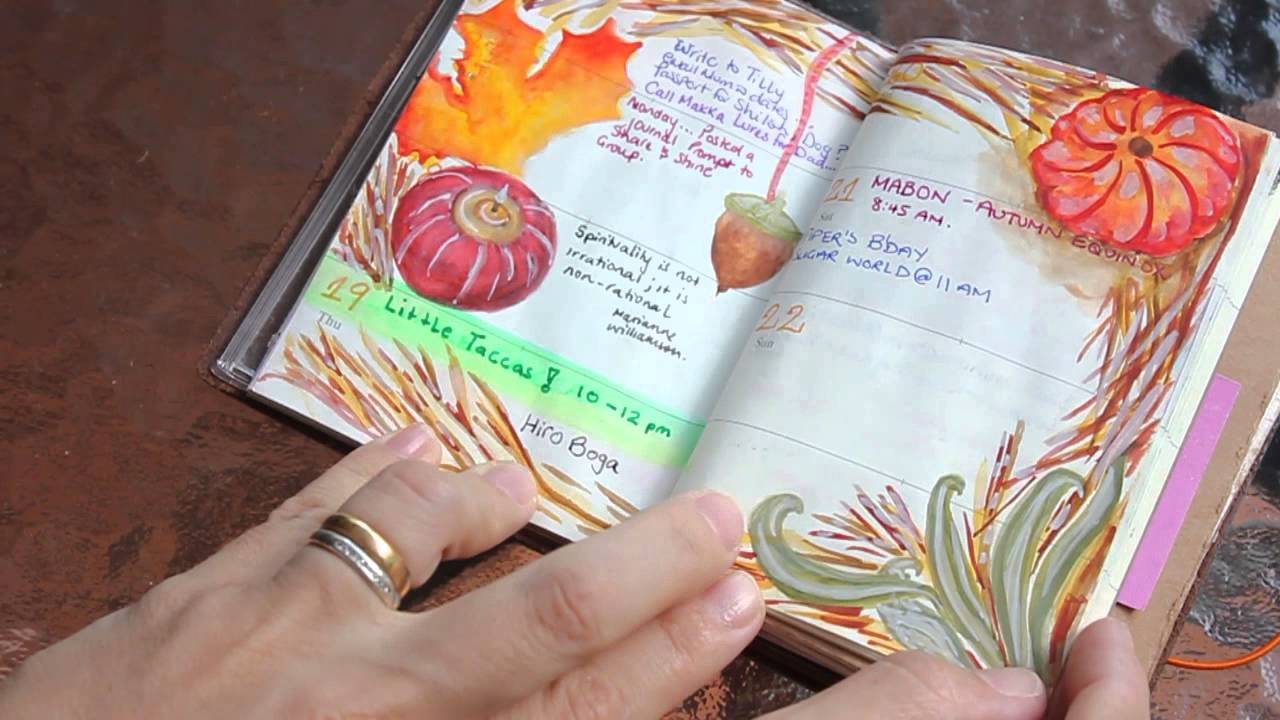 Write to Tilly
email Mum re dates
Passport for Shiloh
Call Makka Lures for Dad...
Dog?
Monday... Posted a
Journal Prompt to
Share & Shine
Group.
Spirituality is not
irrational; it is
non-rational
Marianne
Williamson.
19
Thu
Little Taccas! 10-12 pm
Hiro Boga
21
Sat
MABON - AUTUMN EQUINOX
8:45 AM.
PIPER'S B'DAY
SUGAR WORLD @ 11 AM
22
Sun